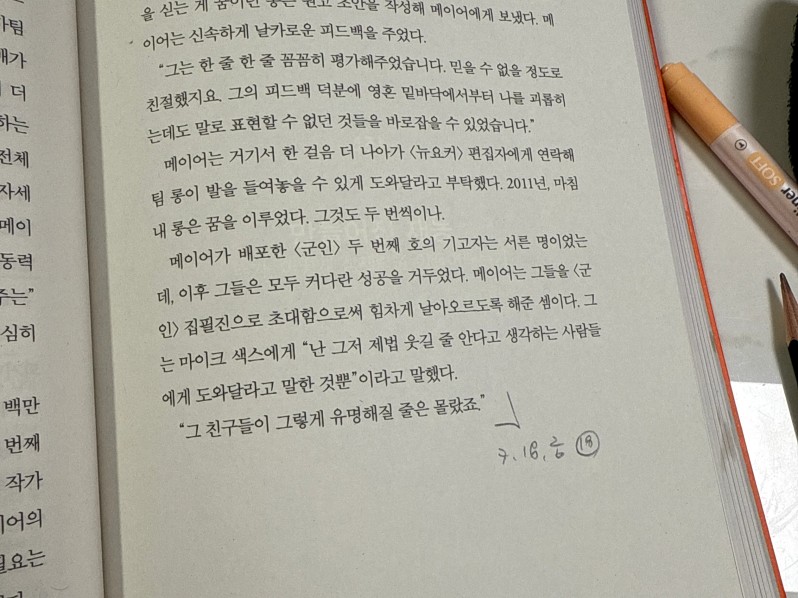 을 싣는 게 꿈이던 롱은 원고 초안을 작성해 메이어에게 보냈다. 메
이어는 신속하게 날카로운 피드백을 주었다.
“그는 한 줄 한 줄 꼼꼼히 평가해주었습니다. 믿을 수 없을 정도로
친절했지요. 그의 피드백 덕분에 영혼 밑바닥에서부터 나를 괴롭히
는데도 말로 표현할 수 없던 것들을 바로잡을 수 있었습니다.”
메이어는 거기서 한 걸음 더 나아가 〈뉴요커〉 편집자에게 연락해
팀 롱이 발을 들여놓을 수 있게 도와달라고 부탁했다. 2011년, 마침
내 롱은 꿈을 이루었다. 그것도 두 번씩이나.
메이어가 배포한 〈군인〉 두 번째 호의 기고자는 서른 명이었는
데, 이후 그들은 모두 커다란 성공을 거두었다. 메이어는 그들을 〈군
인〉 집필진으로 초대함으로써 힘차게 날아오르도록 해준 셈이다. 그
는 마이크 색스에게 “난 그저 제법 웃길 줄 안다고 생각하는 사람들
에게 도와달라고 말한 것뿐”이라고 말했다.
“그 친구들이 그렇게 유명해질 줄은 몰랐죠.”
7, 18,
18
팀
가
더
하는
전체
자세
메이
동력
주는”
심히
백만
번째
작가
이어의
필요는
SOFT